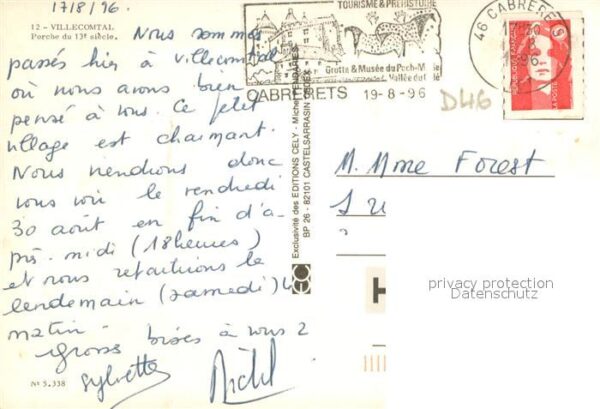 17/8/96.
12 - VILLECOMTAL
Porche du 13e siècle.
Nous sommes
passés hier à Villecomtal
où nous avons bien
pensé à vous. Ce petit
village est charmant.
Nous viendrons donc
vous voir le vendredi
30 août en fin d'a-
près-midi (18 heures)
et nous repartirons le
lendemain (samedi)
matin.
Grosses bises à vous 2
Sylvette
Michel
No 5.338
Exclusivité des EDITIONS CELY - Michel
BP 26 - 82101 CASTELSARRASIN
TOURISME & PRÉHISTOIRE
Grotte & Musée du Pech-Merle
Vallée du Célé
CABRERETS 19-8-96
46 CABRERETS
D46
REPUBLIQUE FRANCAISE
LA POSTE
M. Mme Forest
H
privacy protection
Datenschutz